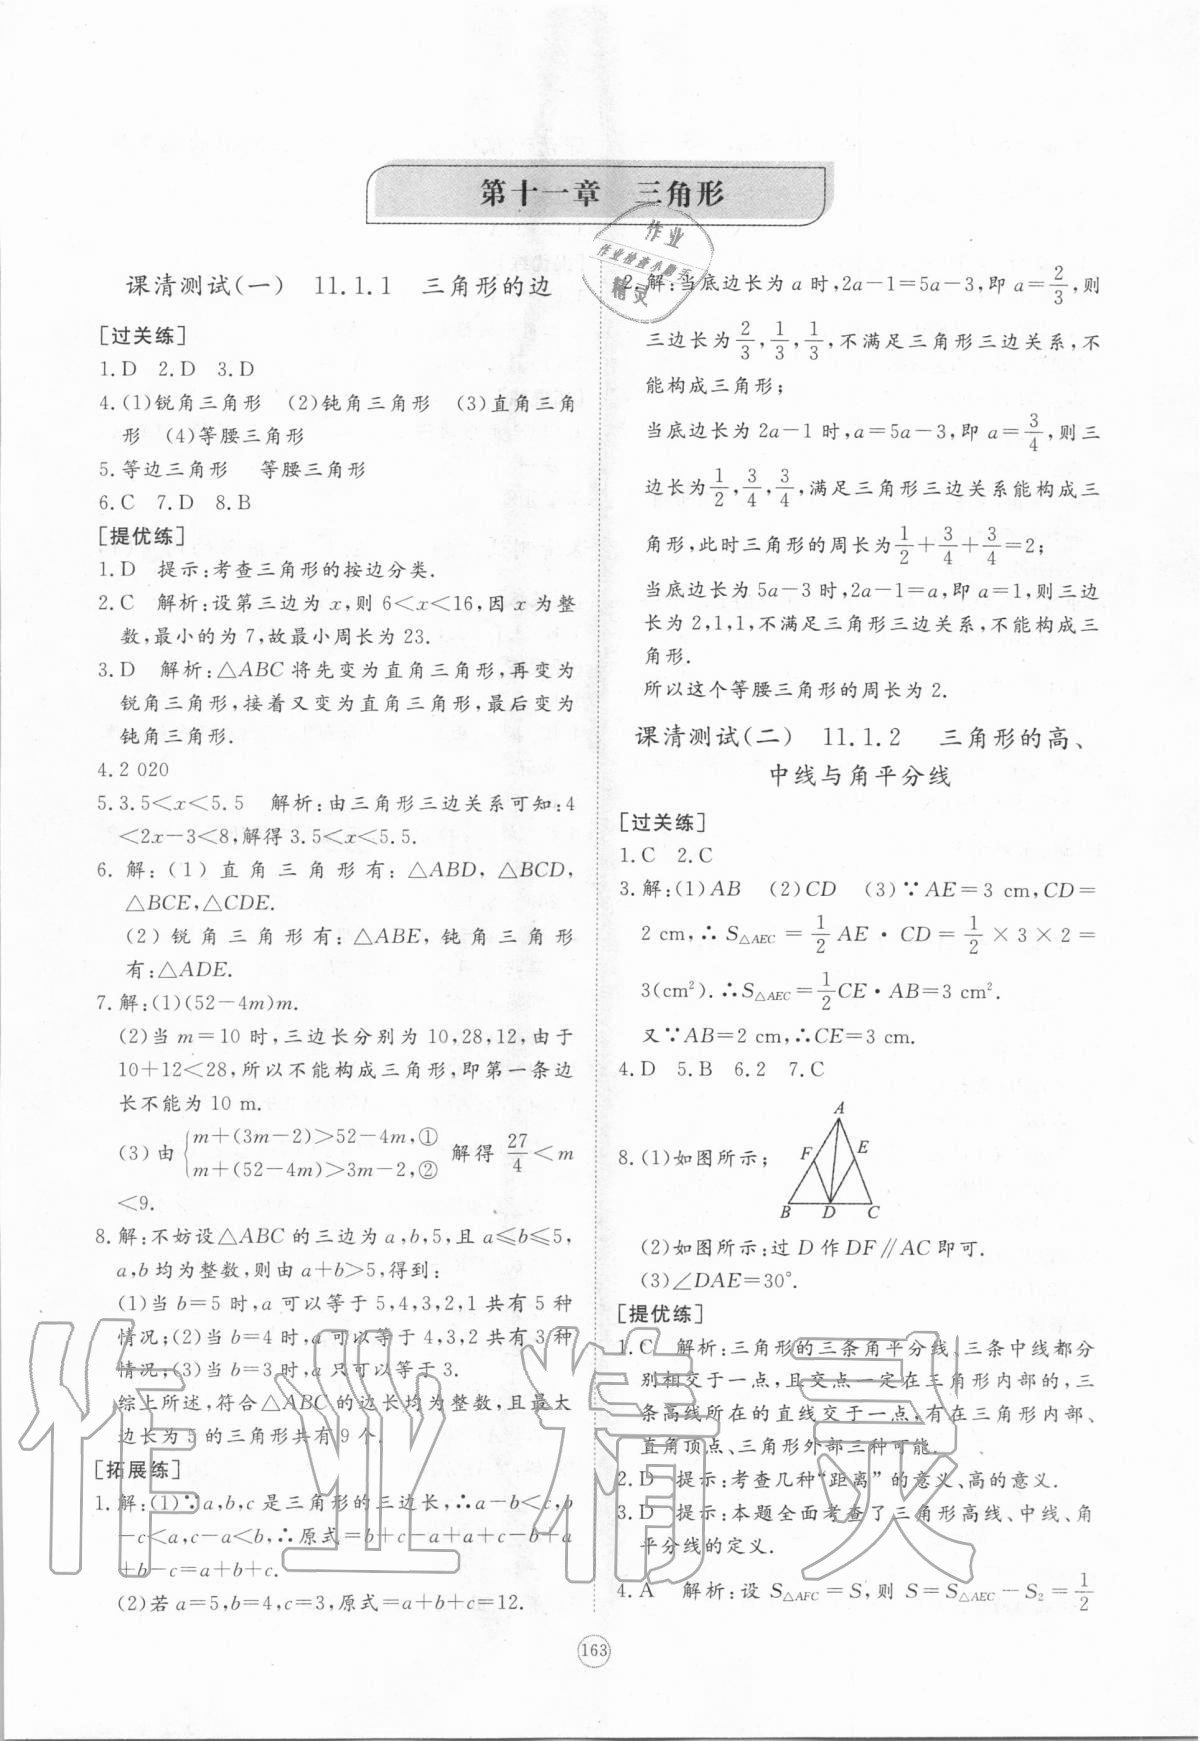 第十一章 三角形
课清测试(一) 11.1.1 三角形的边
[过关练]
1.D 2.D 3.D
4.(1)锐角三角形 (2)钝角三角形 (3)直角三角
形 (4)等腰三角形
5.等边三角形 等腰三角形
6.C 7.D 8.B
[提优练]
1.D 提示:考查三角形的按边分类.
2.C 解析:设第三边为 x,则 6<x<16,因 x 为整
数,最小的为 7,故最小周长为 23.
3.D 解析:△ABC 将先变为直角三角形,再变为
锐角三角形,接着又变为直角三角形,最后变为
钝角三角形.
4.2 020
5.3.5<x<5.5 解析:由三角形三边关系可知:4
<2x-3<8,解得 3.5<x<5.5.
6.解:(1)直角三角形有:△ABD,△BCD,
△BCE,△CDE.
(2)锐角三角形有:△ABE,钝角三角形
有:△ADE.
7.解:(1)(52-4m)m.
(2)当 m=10 时,三边长分别为 10,28,12,由于
10+12<28,所以不能构成三角形,即第一条边
长不能为 10 m.
(3)由{m+(3m-2)>52-4m,① m+(52-4m)>3m-2,② 解得 27/4<m
<9.
8.解:不妨设△ABC 的三边为 a,b,5,且 a≤b≤5,
a,b 均为整数,则由 a+b>5,得到:
(1)当 b=5 时,a 可以等于 5,4,3,2,1 共有 5 种
情况;(2)当 b=4 时,a 可以等于 4,3,2 共有 3 种
情况;(3)当 b=3 时,a 只可以等于 3.
综上所述,符合△ABC 的边长均为整数,且最大
边长为 5 的三角形共有 9 个.
[拓展练]
1.解:(1)∵a,b,c 是三角形的三边长,∴a-b<c,b
-c<a,c-a<b,∴原式=b+c-a+a+c-b+a
+b-c=a+b+c.
(2)若 a=5,b=4,c=3,原式=a+b+c=12.
2.解:当底边长为 a 时,2a-1=5a-3,即 a=2/3,则
三边长为 2/3,1/3,1/3,不满足三角形三边关系,不
能构成三角形;
当底边长为 2a-1 时,a=5a-3,即 a=3/4,则三
边长为 1/2,3/4,3/4,满足三角形三边关系能构成三
角形,此时三角形的周长为 1/2+3/4+3/4=2;
当底边长为 5a-3 时,2a-1=a,即 a=1,则三边
长为 2,1,1,不满足三角形三边关系,不能构成三
角形.
所以这个等腰三角形的周长为 2.
课清测试(二) 11.1.2 三角形的高、
中线与角平分线
[过关练]
1.C 2.C
3.解:(1)AB (2)CD (3)∵AE=3 cm,CD=
2 cm,∴S△AEC=1/2 AE·CD=1/2×3×2=
3(cm²).∴S△AEC=1/2 CE·AB=3 cm².
又∵AB=2 cm,∴CE=3 cm.
4.D 5.B 6.2 7.C
8.(1)如图所示;
A
F E
B D C
(2)如图所示:过 D 作 DF∥AC 即可.
(3)∠DAE=30°.
[提优练]
1.C 解析:三角形的三条角平分线、三条中线都分
别相交于一点,且交点一定在三角形内部的,三
条高线所在的直线交于一点,有在三角形内部、
直角顶点、三角形外部三种可能.
2.D 提示:考查几种“距离”的意义、高的意义.
3.D 提示:本题全面考查了三角形高线、中线、角
平分线的定义.
4.A 解析:设 S△AFC=S,则 S=S△AEC-S₂=1/2
163
作业
作业检查小帮手
精灵
作业精灵